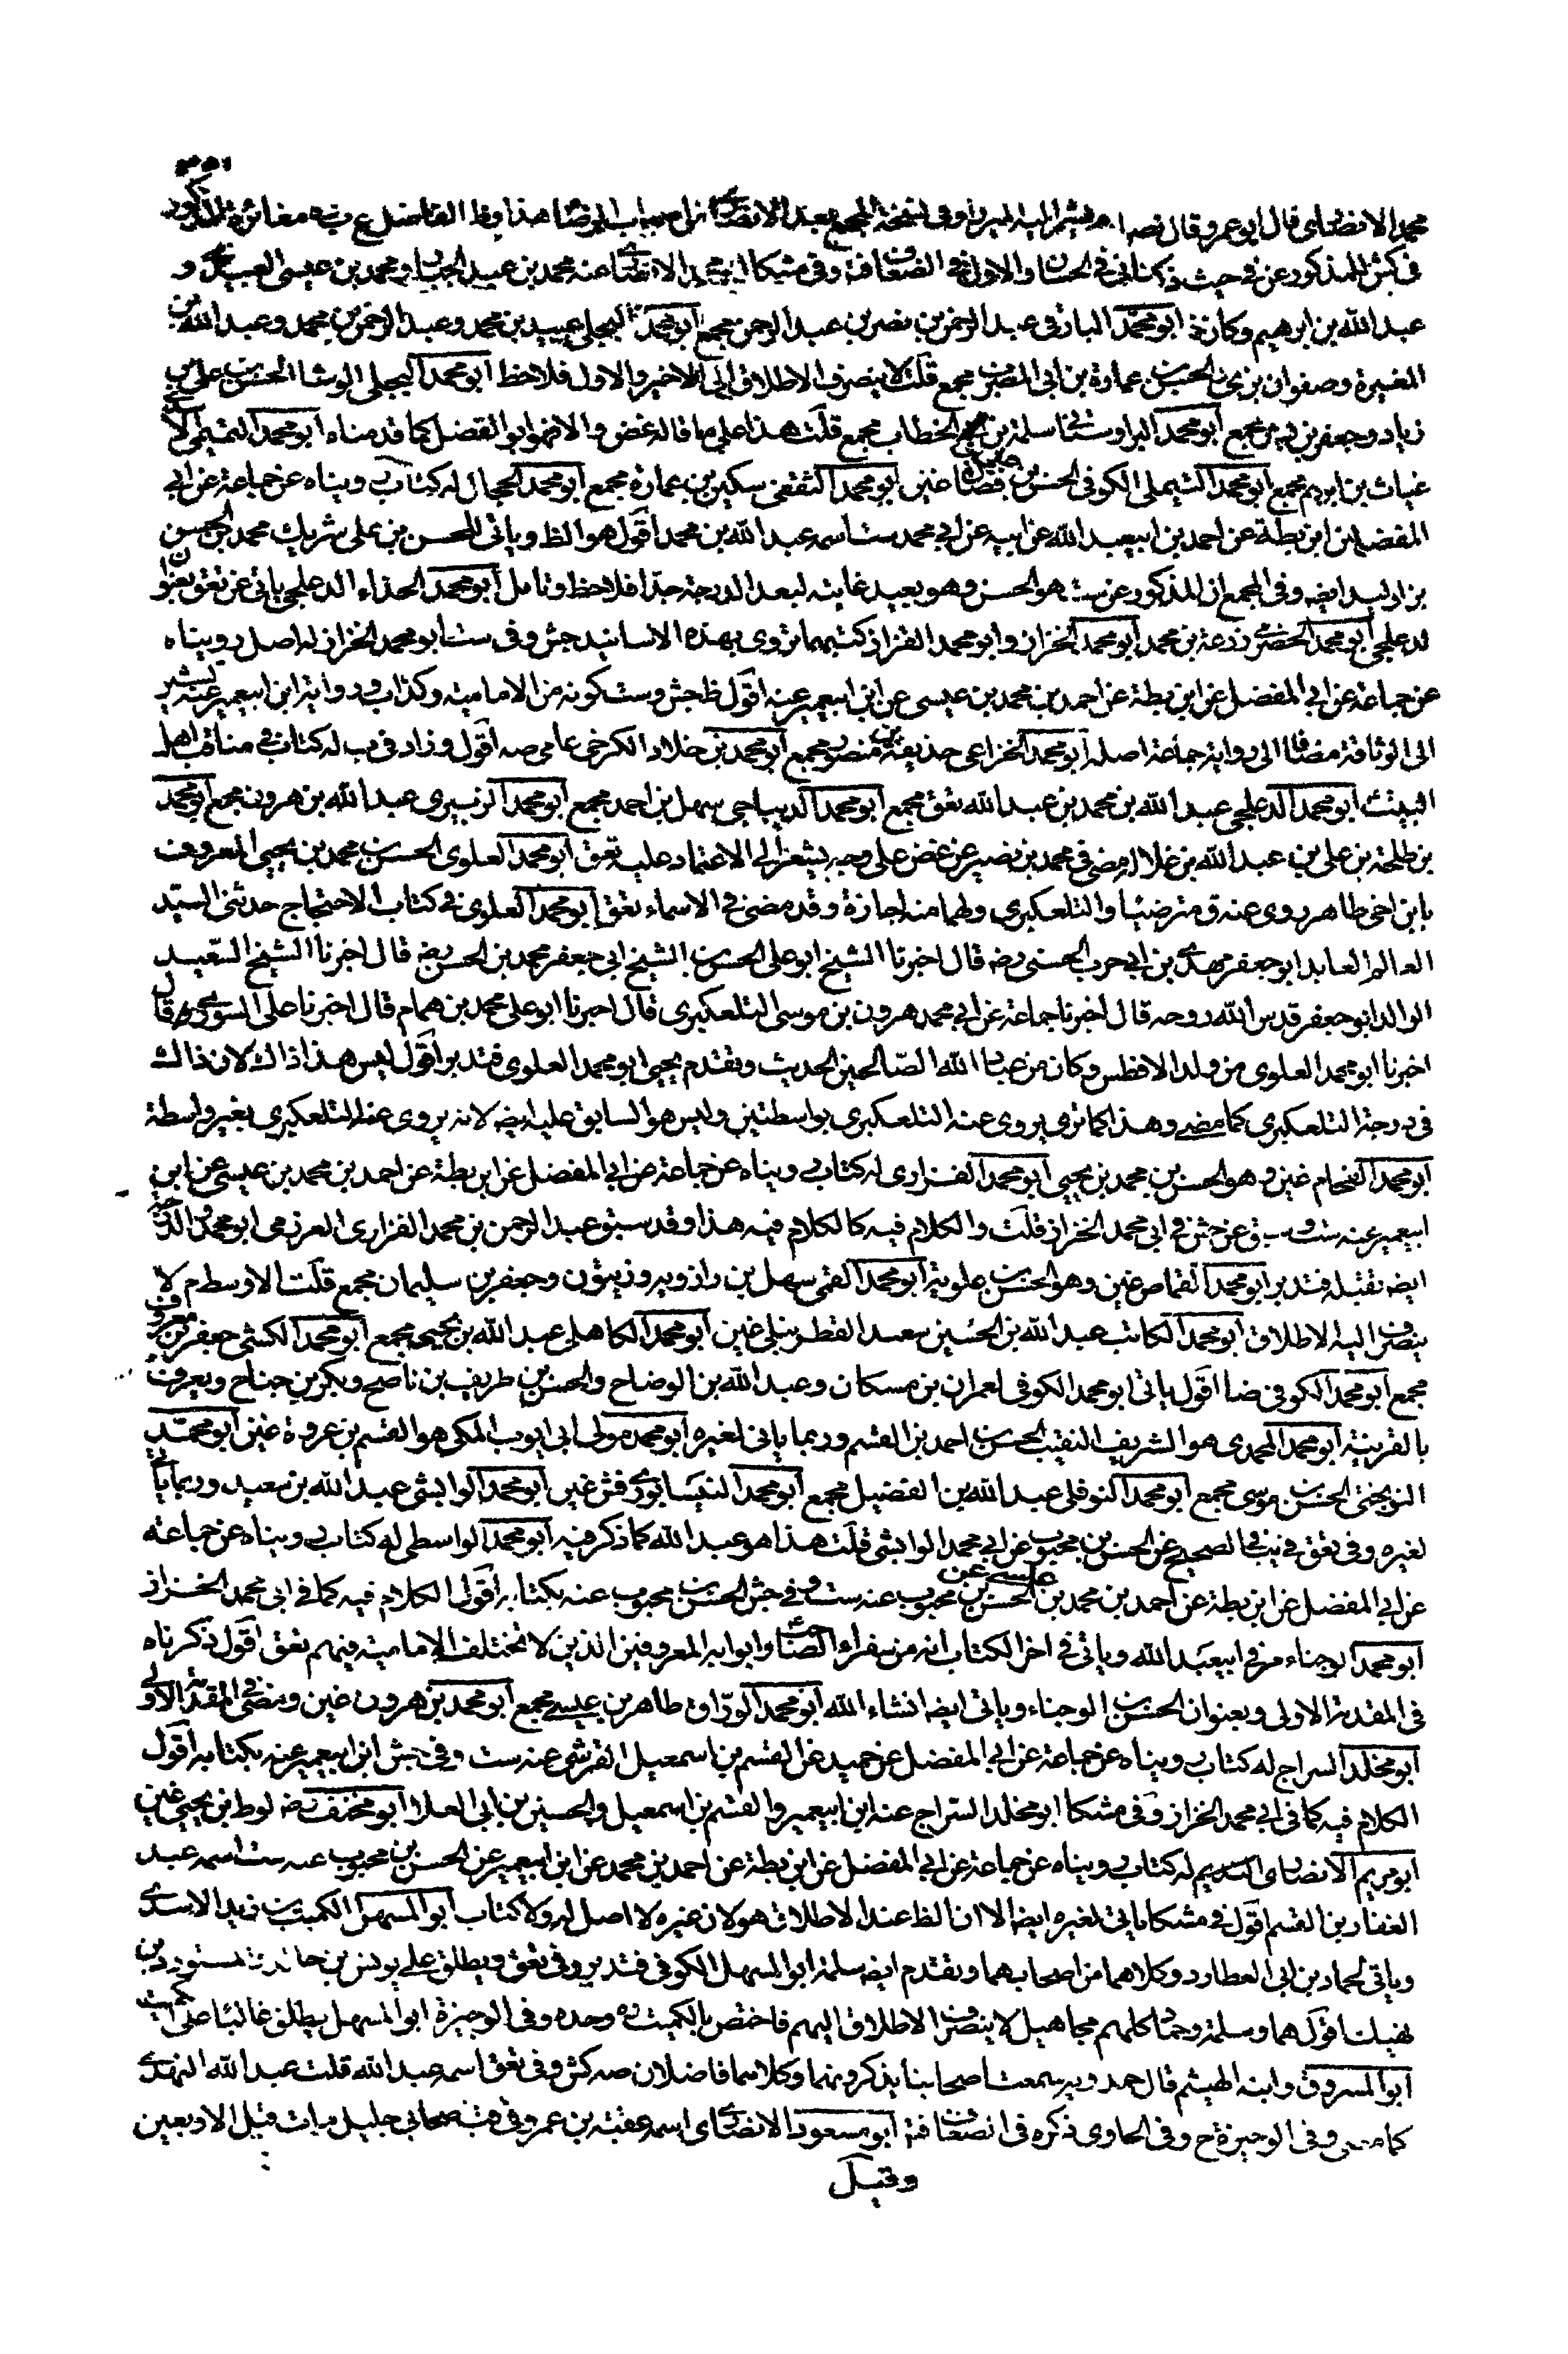 ٣٥١
محمد الانصاى قال ابو عمرو قال نصر وفى نسخة المجمع بعد الانصارى هذا وظ الفاضل ع ب مغائرة المذكور
فى كش للمذكور عن فى حيث ذكر الثانى فى الحسان والاول فى الضعاف وفى مشكا ابو محمد الانصا عنه محمد بن عبد الجبار ومحمد بن عيسى العبيدى و
عبد الله بن ابرهيم وكانه ابو محمد البارقى عبد الرحمن بن نصر بن عبد الرحمن مجمع ابو محمد البجلى عبيد بن محمد وعبد الرحمن بن محمد وعبد الله بن
المغيرة وصفوان بن يحيى والحسن بن عمارة بن ابى المضرب مجمع قلت لا ينصرف الاطلاق الى الاخير والاول فلاحظ ابو محمد البجلى الوشا الحسن بن على بن
زياد وجعفر بن مجمع ابو محمد البراوستانى سلمة بن الخطاب مجمع قلت هذا على ما قاله غض والا فهو ابو الفضل كما قدمناه ابو محمد التميمى
غياث بن ابرهيم مجمع ابو محمد التيملى الكوفى الحسن بن على بن فضا غنى ابو محمد الثقفى سكين بن عمارة مجمع ابو محمد الحجال له كتاب رويناه عن جماعة عن ابى
المفضل عن ابن بطة عن احمد بن ابيعبد الله عن ابيه عن ابى محمد ست اسمه عبد الله بن محمد اقول هو الظ وياتى للحسن بن على شريك محمد بن الحسن
بن الوليد ايضه وفى المجمع ان المذكور عن ست هو الحسن وهو بعيد غايته لبعد الدرجة جدا فلاحظ وتامل ابو محمد الحذاء الدعلجى ياتى عن تعق بعنوان
الدعلجى ابو محمد الحضرمى زرعة بن محمد ابو محمد الخزاز وابو محمد القزاز كتبهما تروى بهذه الاسانيد جش وفى ست ابو محمد الخزاز له اصل رويناه
عن جماعة عن ابى المفضل عن ابن بطة عن احمد بن محمد بن عيسى عن ابن ابيعمير عنه اقول ظ جش وست كونه من الامامية وكذا ب ورواية ابن ابيعمير عنه تشير
الى الوثاقة مضافا الى رواية جماعة اصله ابو محمد الخزاعى حذيفة بن منصور مجمع ابو محمد بن خلاد الكرخى عامى صه اقول وزاد فى ب له كتاب فى مناقب اهل
البيت ابو محمد الدعلجى عبد الله بن محمد بن عبد الله تعق مجمع ابو محمد الديباجى سهل بن احمد مجمع ابو محمد الزبيرى عبد الله بن هرون مجمع ابو محمد
بن طلحة بن على بن عبد الله بن غلالة مضى فى محمد بن نصير عن غض على وجه يشعر الى الاعتماد عليه تعق ابو محمد العلوى الحسن بن محمد بن يحيى المعروف
بابن اخى طاهر روى عنه ق مترضيا والتلعكبرى ولهما منه اجازة وقد مضى فى الاسماء تعق ابو محمد العلوى فى كتاب الاحتجاج حدثنى السيد
العالم العابد ابو جعفر مهدى بن ابى حرب الحسنى رضه قال اخبرنا الشيخ ابو على الحسن بن الشيخ ابى جعفر محمد بن الحسن رضه قال اخبرنا الشيخ السعيد
الوالد ابو جعفر قدس الله روحه قال اخبرنا جماعة عن ابى محمد هرون بن موسى التلعكبرى قال اخبرنا ابو على محمد بن همام قال اخبرنا على السورى قال
اخبرنا ابو محمد العلوى من ولد الافطس وكان من عباد الله الصالحين الحديث وتقدم يحيى ابو محمد العلوى فتدبر اقول ليس هذا ذاك لان ذاك
فى درجة التلعكبرى كما مضى وهذا كما ترى يروى عنه التلعكبرى بواسطتين وليس هو السابق عليه ايضه لانه يروى عنه التلعكبرى بغير واسطة
ابو محمد الفحام غنى وهو الحسن بن محمد بن يحيى ابو محمد الفزارى له كتاب رويناه عن جماعة عن ابى المفضل عن ابن بطة عن احمد بن محمد بن عيسى عن ابن
ابيعمير عنه ست وسبق عن جش فى ابى محمد الخزاز قلت والكلام فيه كالكلام فيه هذا وقد سبق عبد الرحمن بن محمد الفزارى العرزمى ابو محمد
ايضه نقبله فتدبر ابو محمد القماص غنى وهو الحسن بن علوية ابو محمد القمى سهل بن زاذويه وزيتون وجعفر بن سليمان مجمع قلت الاوسط م لا
ينصرف اليه الاطلاق ابو محمد الكاتب عبد الله بن الحسين بن سعد القطربلى غنى ابو محمد الكاهلى عبد الله بن يحيى مجمع ابو محمد الكشى جعفر بن معروف
مجمع ابو محمد الكوفى ضا اقول ياتى ابو محمد الكوفى لعمران بن مسكان وعبد الله بن الوضاح والحسن بن طريف بن ناصح وبكر بن جناح ويعرف
بالقرينة ابو محمد المحمدى هو الشريف النقيب الحسن بن احمد بن القسم وربما ياتى لغيره ابو محمد مولى ابى ايوب المكى هو القسم بن عروة غنى ابو محمد
النوبختى الحسن بن موسى مجمع ابو محمد النوفلى عبد الله بن الفضيل مجمع ابو محمد النيسابورى فش غنى ابو محمد الوابشى عبد الله بن سعيد وربما ياتى
لغيره وفى تعق فى يب فى الصحيح عن الحسن بن محبوب عن ابى محمد الوابشى قلت هذا هو عبد الله كما ذكر فيه ابو محمد الواسطى له كتاب رويناه عن جماعة
عن ابى المفضل عن ابن بطة عن احمد بن محمد بن عيسى عن الحسن بن محبوب عنه ست وفى جش الحسن بن محبوب عنه بكتابه اقول الكلام فيه كما فى ابى محمد الخزاز
ابو محمد الوجناء مر فى ابيعبد الله وياتى فى اخر الكتاب انه من سفراء الصا وابوابه المعروفين الذين لا تختلف الامامية فيهم تعق اقول ذكرناه
فى المقدمة الاولى وبعنوان الحسن بن الوجناء وياتى ايضه انشاء الله ابو محمد الوراق طاهر بن عيسى مجمع ابو محمد بن هرون غنى ومضى فى المقدمة الاولى
ابو مخلد السراج له كتاب رويناه عن جماعة عن ابى المفضل عن حميد عن القسم بن اسمعيل القرشى عنه ست وفى جش ابن ابيعمير عنه بكتابه اقول
الكلام فيه كما فى ابى محمد الخزاز وفى مشكا ابو مخلد السراج عنه ابن ابيعمير والقسم بن اسمعيل والحسين بن ابى العلا ابو مخنف رضه لوط بن يحيى غنى
ابو مريم الانصاى له كتاب رويناه عن جماعة عن ابى المفضل عن ابن بطة عن احمد بن محمد عن ابن ابيعمير عن الحسن بن محبوب عنه ست اسمه عبد
الغفار بن القسم اقول فى مشكا ياتى لغيره ايضه الا ان الظ عند الاطلاق هو لان غيره لا اصل له ولا كتاب ابو المستهل الكميت بن زيد الاسدى
وياتى لحماد بن ابى العطارد وكلاهما من اصحابهما وتقدم ايضه سلمة ابو المستهل الكوفى فتدبر وفى تعق ويطلق على يونس بن
اقول هما وسلمة وحماد كلهم مجاهيل لا ينصرف الاطلاق اليهم فاختص بالكميت ره وحده وفى الوجيزة ابو المستهل يطلق غالبا على
ابو المسروق وابنه الهيثم قال حمدويه سمعت اصحابنا يذكرونهما وكلاهما فاضلان صه كش وفى تعق اسمه عبد الله قلت عبد الله النهدى
كما مضى وفى الوجيزة ح وفى الحاوى ذكره فى الضعاف فتد ابو مسعود الانصاى اسمه عقبة بن عمرو فى صحابى جليل مات قبل الاربعين
وقيل